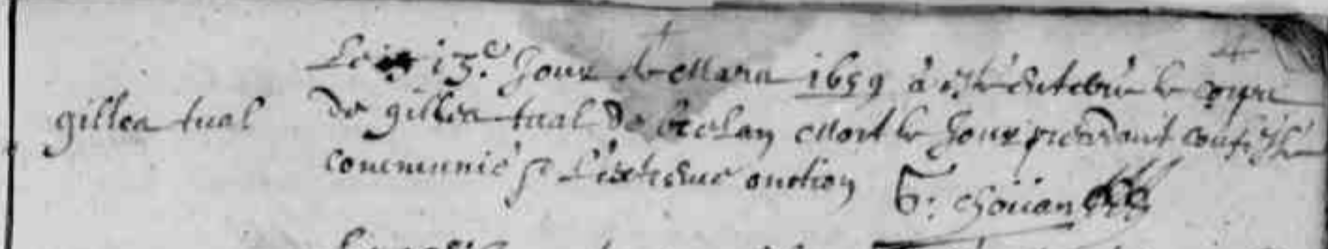 Le 13e Jour de Mars 1659 a esté enterré le corps
gilles tual
de gilles tual de mort le Jour precedant confessé
communié l'extreme onction
G: choüan